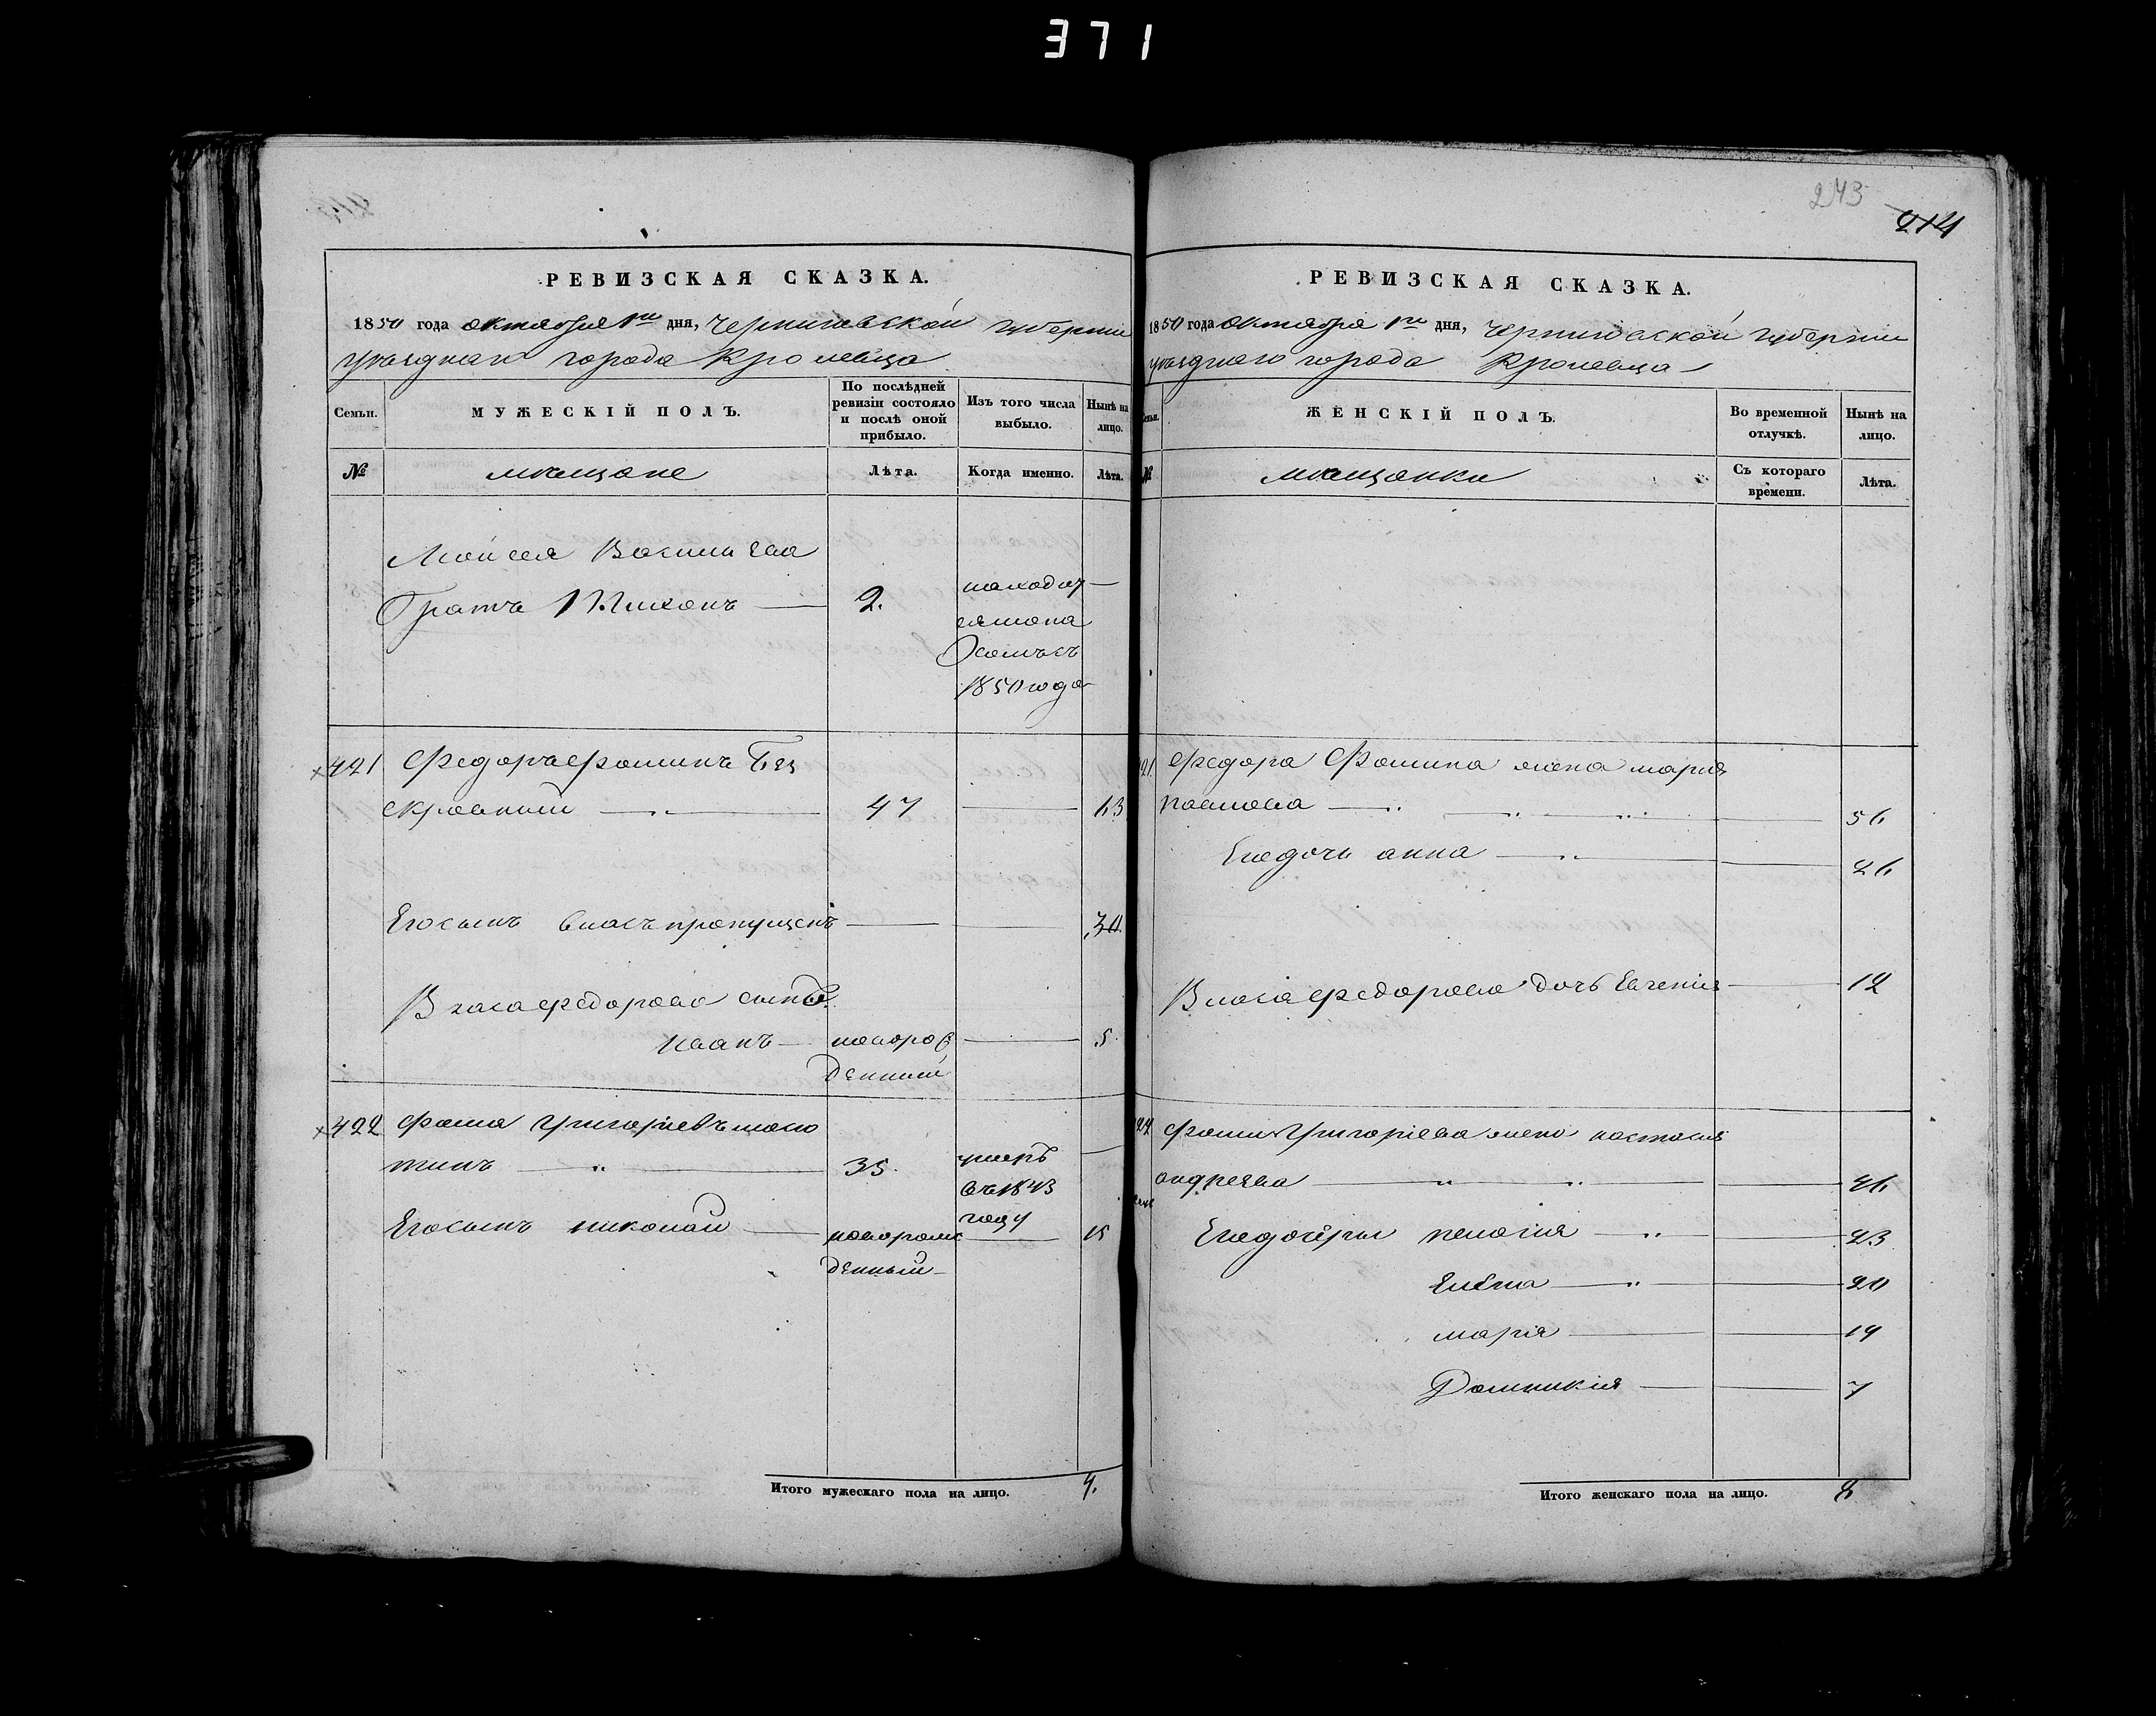 371
РЕВИЗСКАЯ СКАЗКА.
1850 года октября 1го дня, Черниговской губерніи
уѣзднаго города Кролевца
Семьи.
МУЖЕСКІЙ ПОЛЪ.
По послѣдней ревизіи состояло и послѣ оной прибыло.
Изъ того числа выбыло.
Нынѣ на лицо.
№
мѣщане
Лѣта.
Когда именно.
Лѣта.
Мойсея Васильева
братъ Тихонъ 2.
1850 года
421 Федоръ Фоминъ Без
скровный 47 63
Его сынъ Власъ пропущенъ 30.
Власа Федорова сынъ
Иванъ новорож 5.
денный
422 Фома Григорьевъ
35. умеръ
въ 1843
году
Его сынъ Николай новорож 15
денный
Итого мужескаго пола на лицо. 4.
243
214
РЕВИЗСКАЯ СКАЗКА.
1850 года октября 1го дня, Черниговской губерніи
уѣзднаго города Кролевца
Семьи.
ЖЕНСКІЙ ПОЛЪ.
Во временной отлучкѣ.
Нынѣ на лицо.
№
мѣщанки
Съ котораго времени.
Лѣта.
21 Федора Фомина жена Марія
Павлова 56
Его дочь Анна 26
Власа Федорова дочь Евгенія 12
22 Фомы Григоріева жена Настасія
Андреева 46
Его дочери Пелагія 23
Елена 20
Марія 14
Домникія 7
Итого женскаго пола на лицо. 8